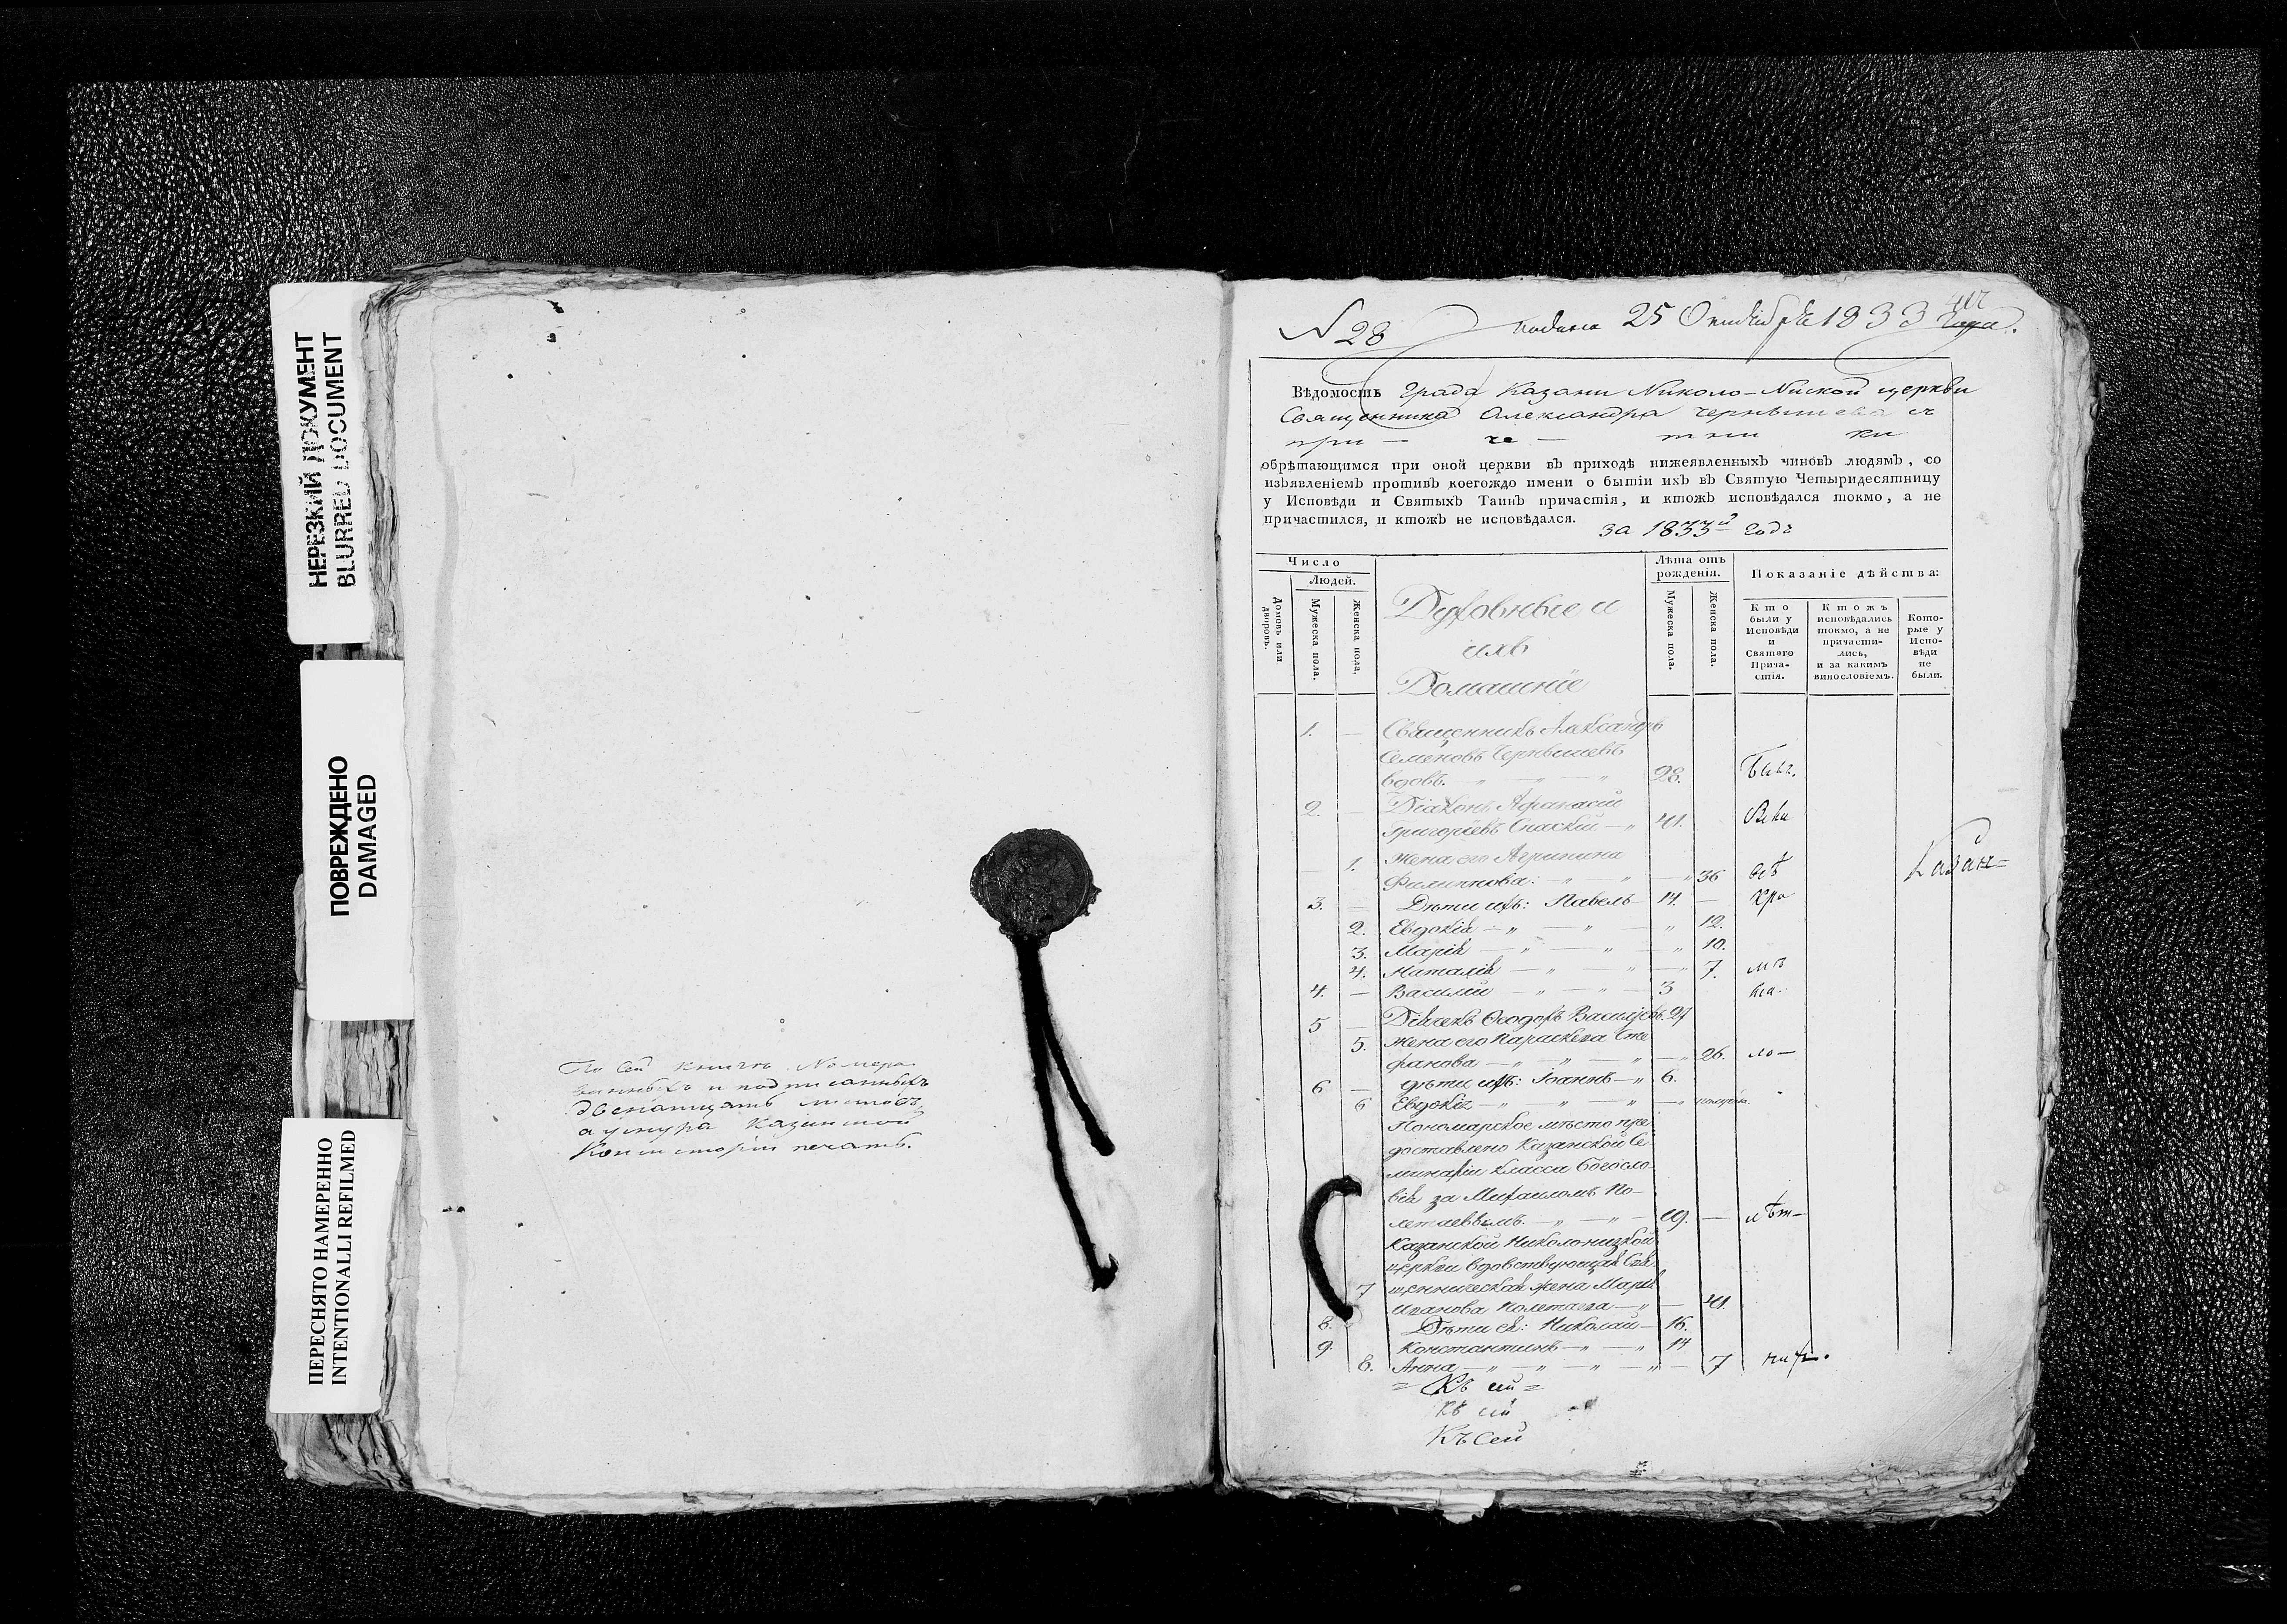 НЕРЕЗКИЙ ДОКУМЕНТ
BLURRED DOCUMENT
ПОВРЕЖДЕНО
DAMAGED
ПЕРЕСНЯТО НАМЕРЕННО
INTENTIONALLI REFILMED
По сей книгѣ Номеро
ванныхъ и подписанныхъ
двенатцать листовъ
а у шнура Казанской
Консисторіи печать.
N 28 подана 25 Октября 1833 года.
Вѣдомость Града Казани Николо-Ниской церкви
Священника Александра Чернышева съ
при — че — тни ки
обрѣтающимся при оной церкви въ приходѣ нижеявленныхъ чиновъ людямъ, со
изъявленіемъ противъ коегождо имени о бытіи ихъ въ Святую Четыридесятницу
у Исповѣди и Святыхъ Таинъ причастія, и ктожъ исповѣдался токмо, а не
причастился, и ктожъ не исповѣдался.
за 1833й годъ
Число
Людей.
Домовъ или дворовъ.
Мужеска пола.
Женска пола.
Духовные и
ихъ
Домашніе
Лѣта отъ
рожденія.
Мужеска пола.
Женска пола.
Показаніе дѣйства:
Кто
были у
Исповѣди
и
Святаго
Прича-
стія.
Ктожъ
исповѣдались
токмо, а не
причасти-
лись,
и за какимъ
винословіемъ.
Кото-
рые у
Испо-
вѣди
не
были.
1. — Священникъ Александръ
Семеновъ Чернышевъ
вдовъ. — 28.
2. — Діаконъ Афанасій
Григорьевъ Спаскій — 41.
1. Жена его Агрипина
Филиппова: — 36
Казан=
3. — Дѣти ихъ: Павелъ — 14. —
2. Евдокія — 12.
3. Марія — 10.
4. Наталія — 7.
4. — Василій — 3
5 — Дьячекъ Ѳеодоръ Васильевъ 27
5. Жена его Параскева Сте
фанова — 26. ло—
6 — дѣти ихъ: Іоаннъ — 6.
6 Евдокія —
Пономарское мѣсто пре
доставлено Казанской Се
минаріи класса Богосло
вія за Михаиломъ По-
летаевымъ. — 19. —
Казанской Николонизкой
церкви вдовствующая Свя
7 щенническая жена Марія
Иванова Полетаева — 41.
8. Дѣти ея: Николай — 16.
9. Константинъ — 14
8. Анна — 7
= Къ сей =
Къ сей
Къ сей